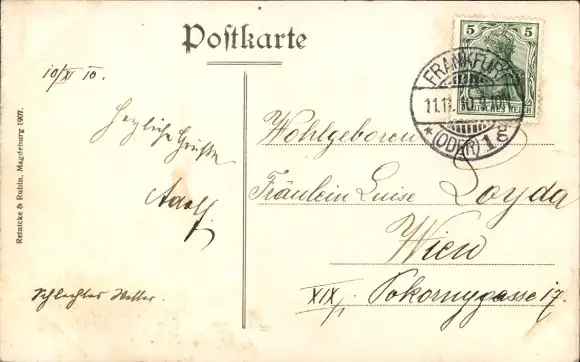 Postkarte
10/XI 10.
Herzliche Grüße
Adolf.
Schlechtes Wetter.
Reinicke & Rubin, Magdeburg 1907.
5 5
DEUTSCHES REICH
FRANKFURT
11.11.10.
* (ODER) 1 g
Wohlgeboren
Fräulein Luise Loyda
Wien
XIX/1 Pokornygasse 17.